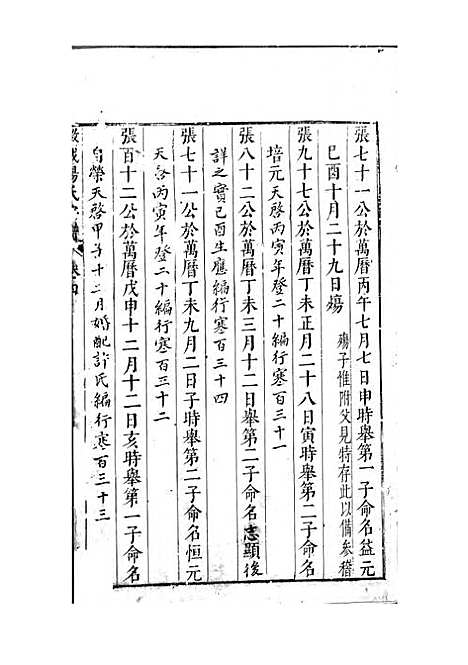 張七十一公於萬曆丙午七月七日申時舉第一子命名益元
己酉十月二十九日殤 殤子惟附父見特存此以備參稽
張九十七公於萬曆丁未正月二十八日寅時舉第二子命名
培元天啓丙寅年登二十編行寒百三十一
張八十二公於萬曆丁未三月十二日舉第二子命名志顯後
詳之實己酉生應編行寒百三十四
張七十一公於萬曆丁未九月二日子時舉第二子命名恒元
天啓丙寅年登二十編行寒百三十二
張百十二公於萬曆戊申十二月十二日亥時舉第一子命名
自榮天啓甲子十二月婚配許氏編行寒百三十三